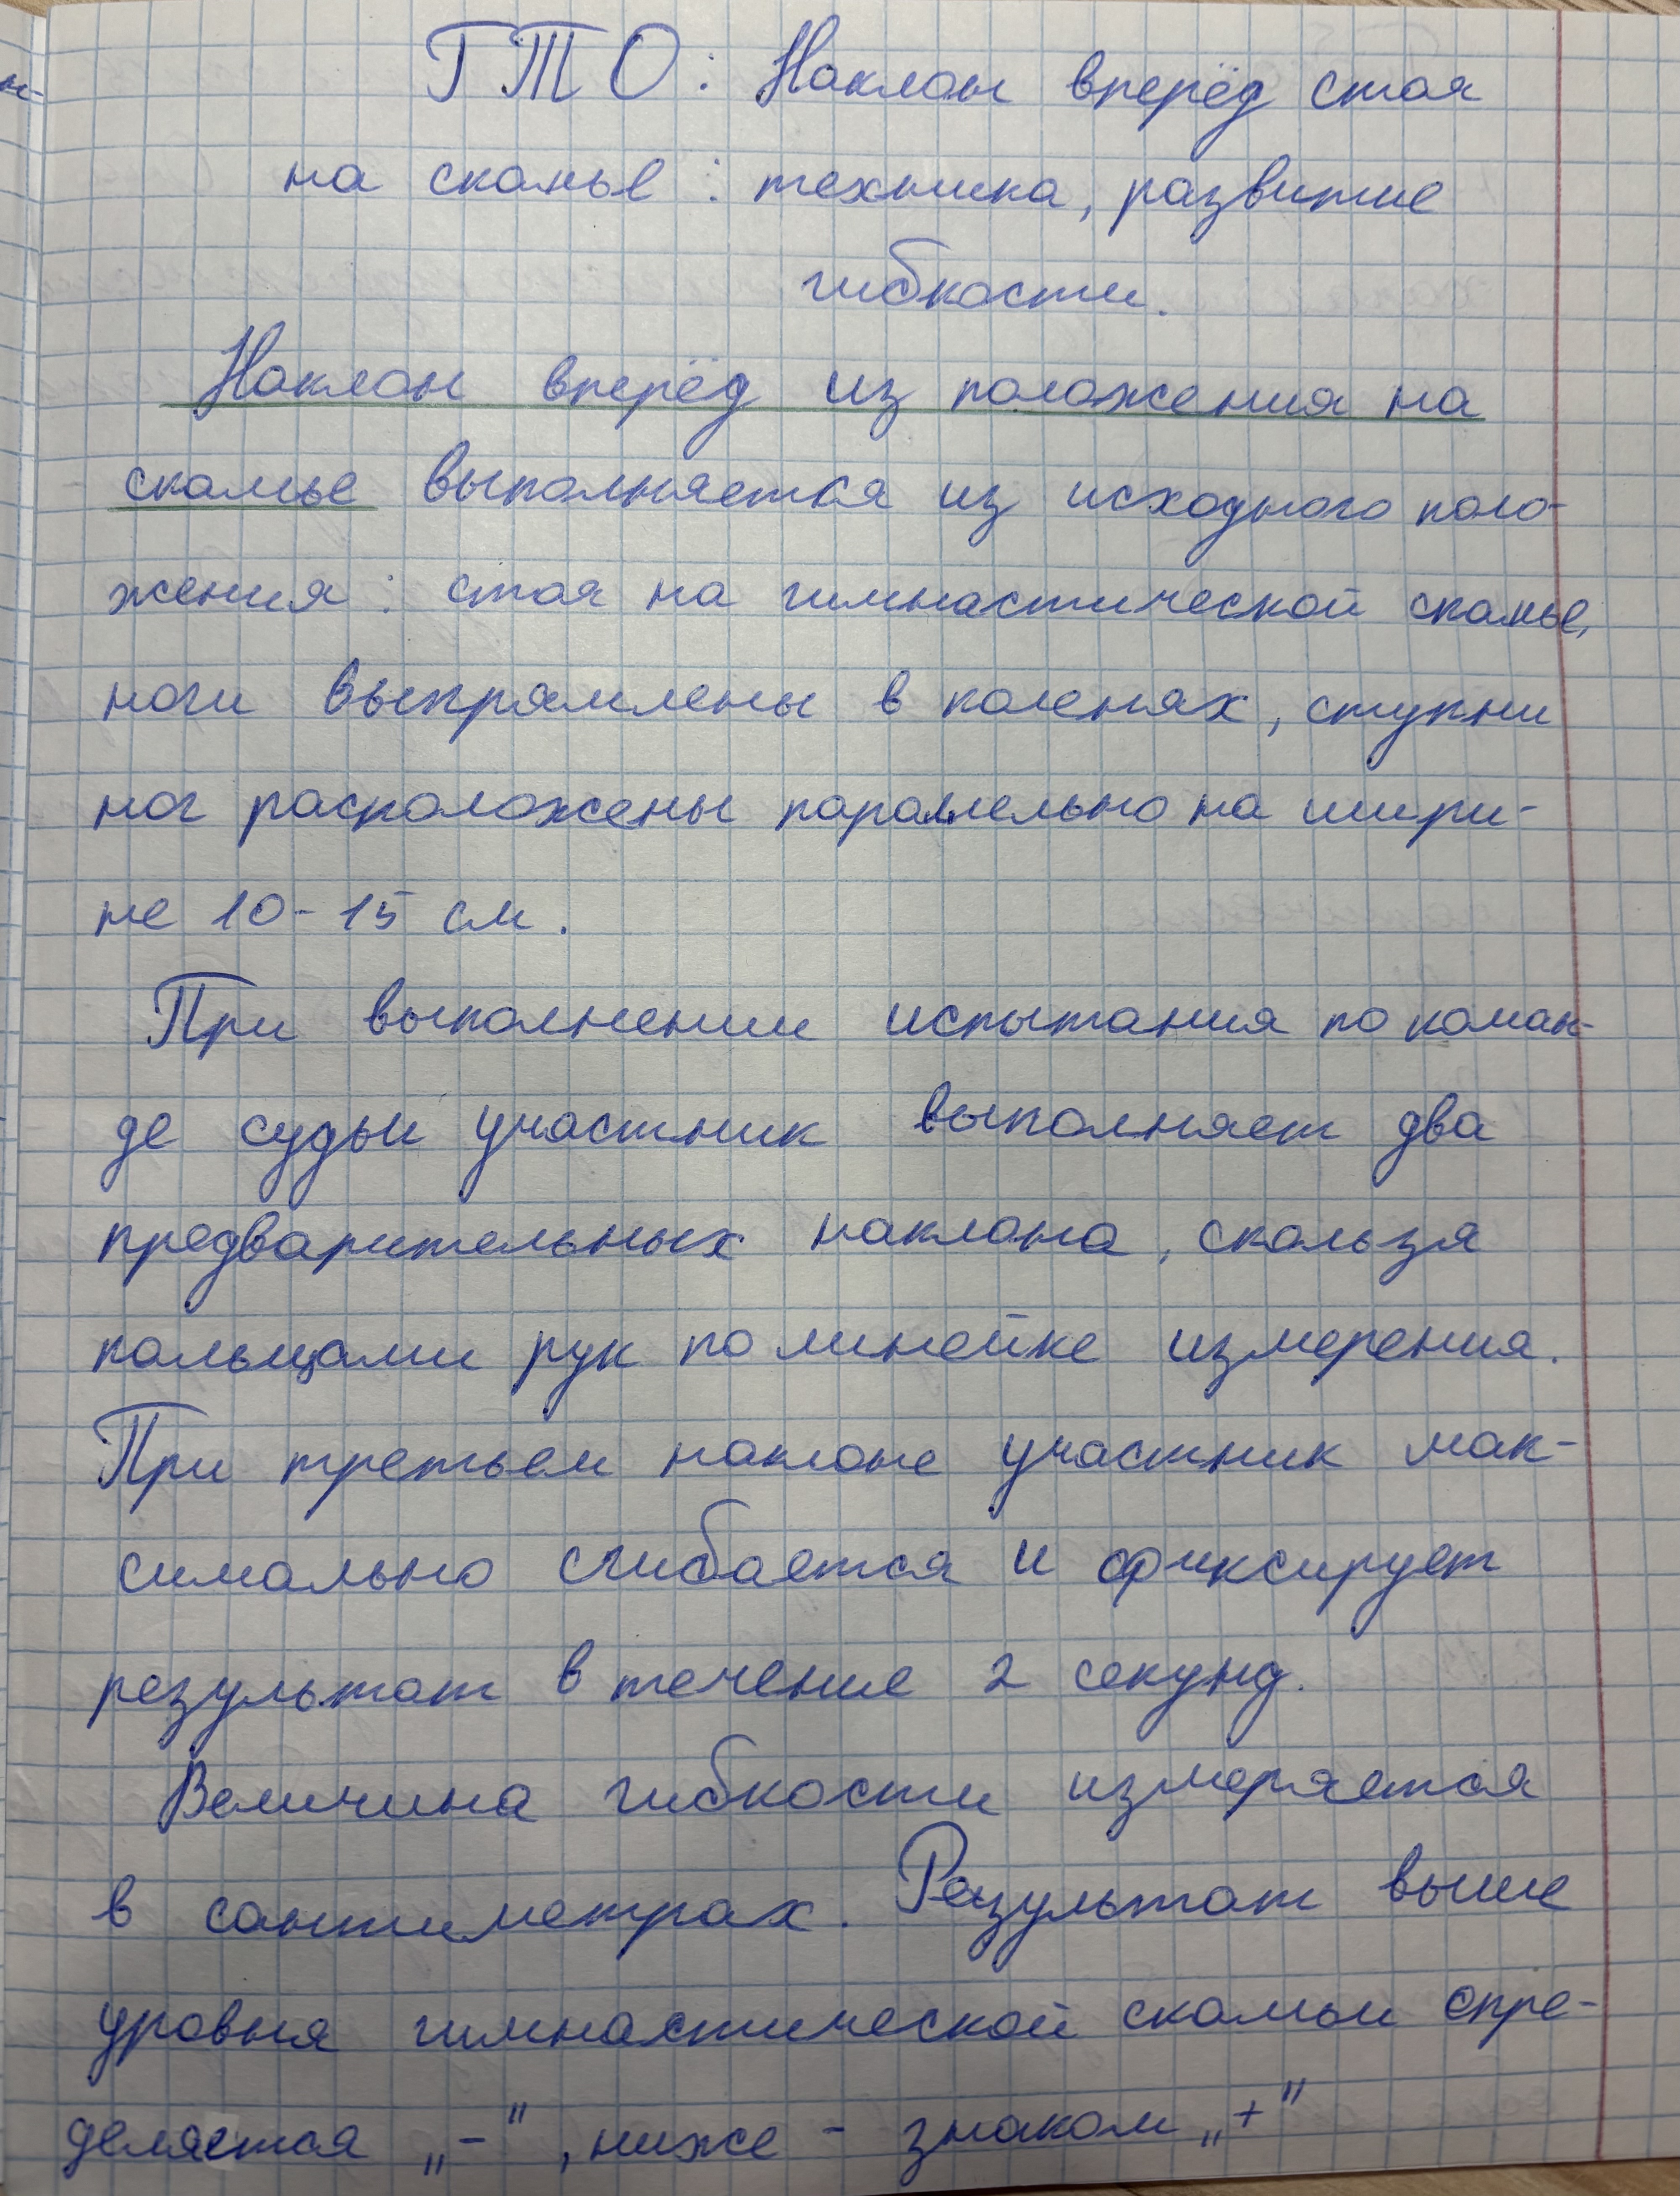 ГТО: Наклон вперёд стоя
на скамье: техника, развитие
гибкости.
Наклон вперёд из положения на
скамье выполняется из исходного поло-
жения: стоя на гимнастической скамье,
ноги выпрямлены в коленях, ступни
ног расположены параллельно на шири-
не 10-15 см.
При выполнении испытания по коман-
де судьи участник выполняет два
предварительных наклона, скользя
пальцами рук по линейке измерения.
При третьем наклоне участник мак-
симально сгибается и фиксирует
результат в течение 2 секунд.
Величина гибкости измеряется
в сантиметрах. Результат выше
уровня гимнастической скамьи опре-
деляется „-“, ниже - знаком „+“